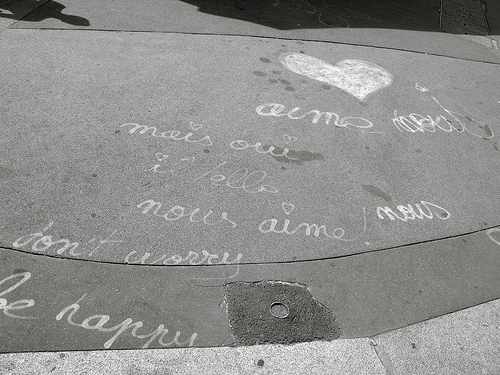 aime
mais oui
nous aime! nous
don't worry
be happy